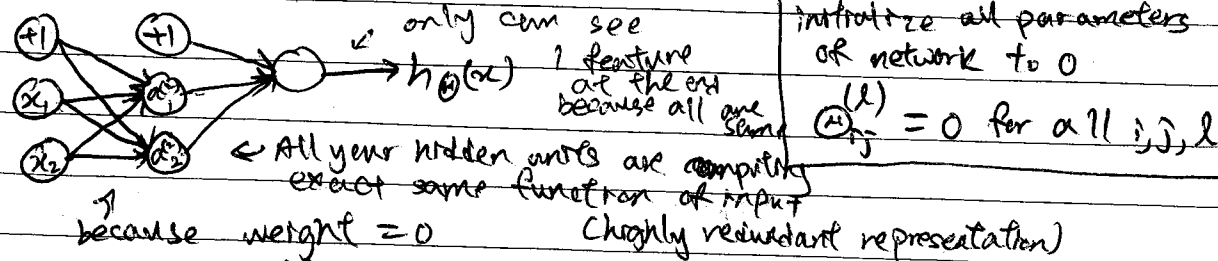 +1 +1
only can see
x₁ a₁⁽²⁾ → h_Θ(x) 1 feature
at the end
because all are
same
x₂ a₂⁽²⁾ ← All your hidden units are computing
exact same function of input
because weight = 0 (highly redundant representation)
initialize all parameters
of network to 0
Θᵢⱼ⁽ˡ⁾ = 0 for all i, j, l